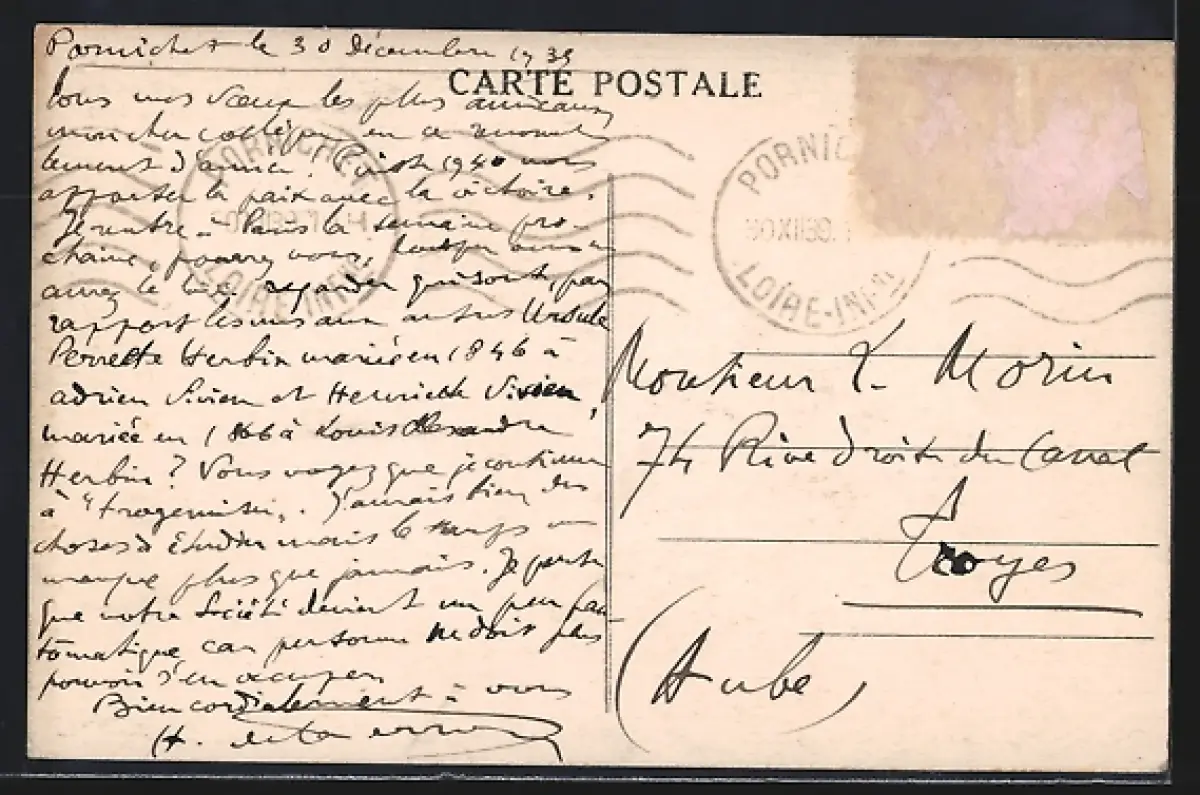 Pornichet le 30 Décembre 1939
CARTE POSTALE
Tous mes vœux les plus amicaux
mon cher collègue en ce renouvel
lement d'année. Puisse 1940 nous
apporter la paix avec la victoire.
Je rentre à Paris la semaine pro-
chaine, pourrez vous, lorsque vous en
aurez le regarder qui sont, par
rapport les uns aux autres Ursule
Perrette Herbin mariée en 1846 à
adrien Vivien et Henriette Vivien,
mariée en 1866 à Louis Alexandre
Herbin? Vous voyez que je continue
à "". J'aurais bien des
choses à étudier mais le temps me
manque plus que jamais. Je
que notre Société devient un peu fan-
tômatique car personne ne doit plus
pouvoir s'en occuper
Bien cordialement à vous
H.
PORNICHET
LOIRE-INFRE
PORNIC
30 XII 39
LOIRE-INFRE
Monsieur L. Morin
74 Rive droite du Canal
Troyes
(Aube)